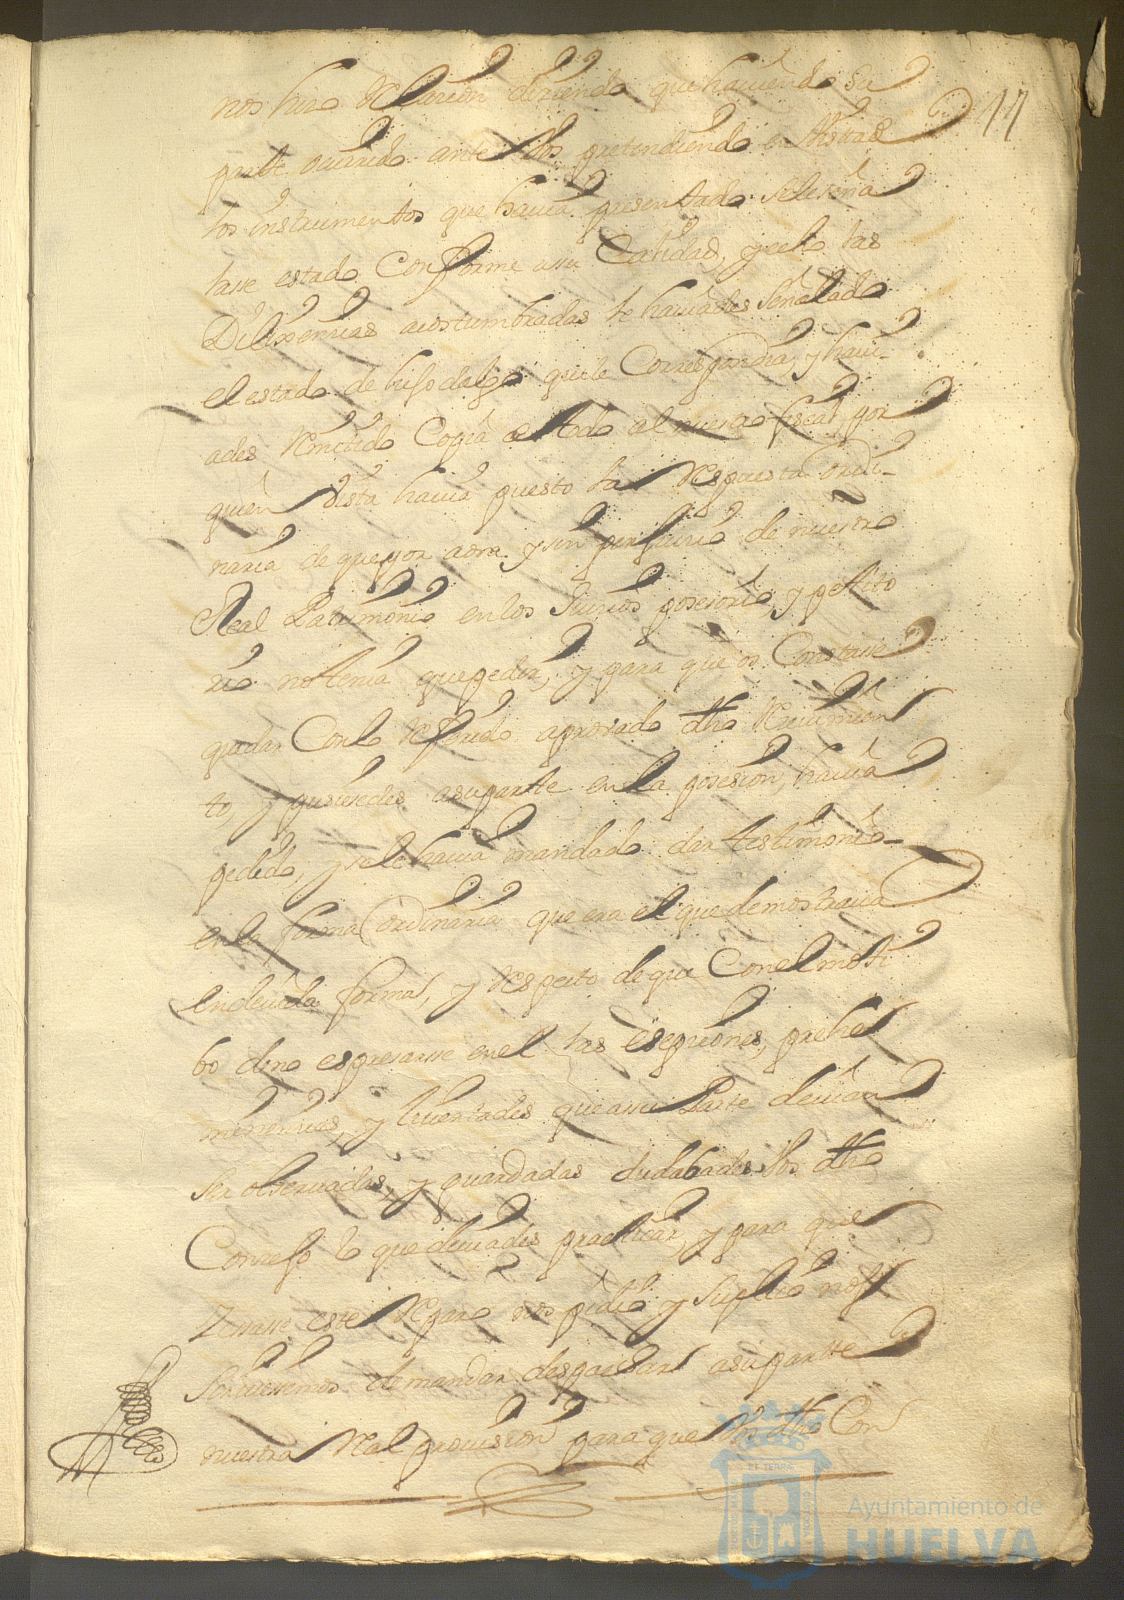 nos hizo Relacion diziendo que haviendo su
parte ocurrido ante Vos pretendiendo en vista de
los instrumentos que havia presentado se le seña
lasse estado Conforme a su Calidad, y echo las
Dilixencias acostumbradas le haviades señalado
el estado de hijo dalgo que le Correspondia, y havi-
ades Remitido Copia de todo al nuestro fiscal, por
quien vista havia puesto la Respuesta ordi-
naria de que por aora y sin perjuicio de nuestro
Real Patrimonio en los Juicios posesorio, y petito
rio no tenia que pedir, y para que os Constase
quedar Con lo Referido aprovado dho Recivimien
to, y pusiesedes a su parte en la posesion, havia
pedido, y se le havia mandado dar testimonio
en la forma ordinaria que era el que demostrava
en devida forma, y Respecto de que Con el moti
bo de no espresarse en el las esepciones, prehe
minencias, y livertades que a su Parte devian
ser observadas, y guardadas dudabades Vos dho
Consejo lo que deviades practicar, y para que
Zesase este Reparo nos pidio, y Suplico nos
Sirviesemos de mandar despachar a su parte
nuestra Real provision para que Vos dho Con
17
Ayuntamiento de
HUELVA